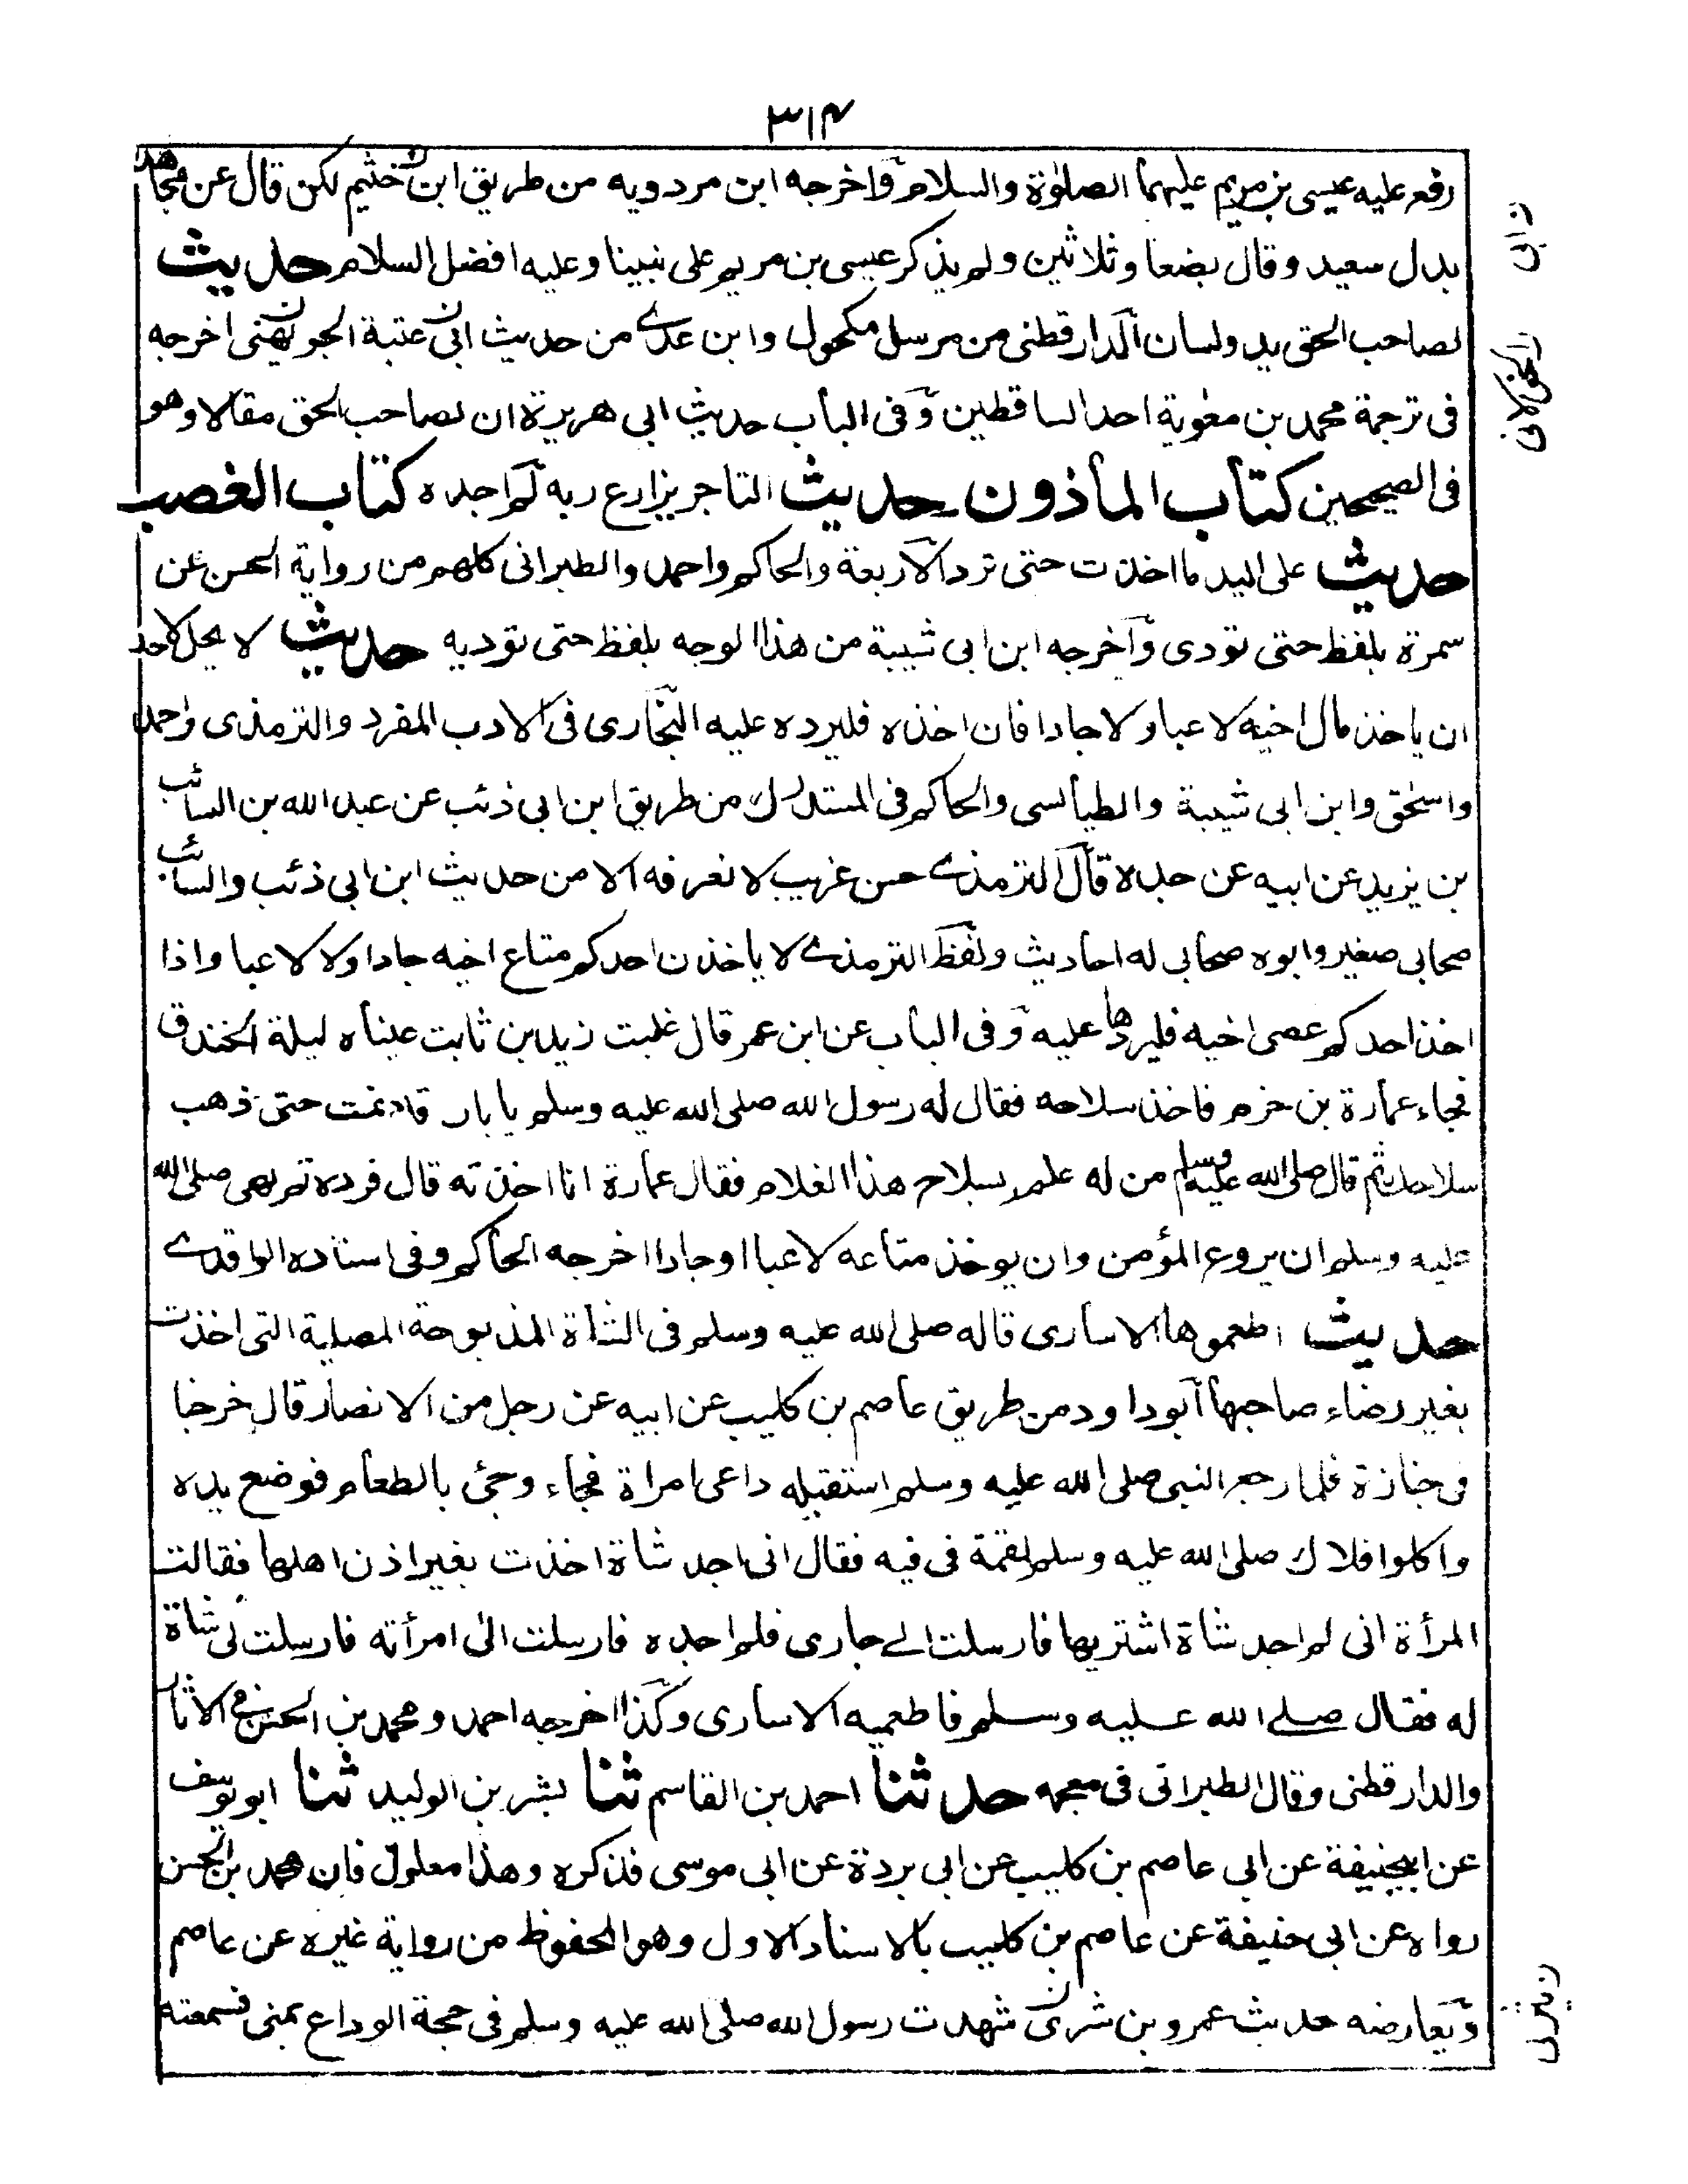 ٣١٤
رفع عليه عيسى بن مريم عليهما الصلوٰة والسلام وٓاخرجه ابن مردويه من طريق ابن خثيم لكن قال عن مجاهد
بدل سعيد وقال بضعا وثلاثين ولم يذكر عيسى بن مريم على نبينا وعليه افضل السلام حديث
لصاحب الحق يد ولسان الدارقطنى من مرسل مكحول وابن عدے من حديث ابى عتبة اخرجه
فى ترجمة محمد بن معٰوية احد الساقطين وٓفى الباب حديث ابى هريرة ان لصاحب الحق مقالا وهو
فى الصحيحين كتاب المأذون حديث التاجر يزارع ربه لم اجده كتاب الغصب
حديث على اليد ما اخذت حتى ترد الاربعة والحاكم واحمد والطبرانى كلهم من رواية الحسن عن
سمرة بلفظ حتى تودى وٓاخرجه ابن ابى شيبة من هذا الوجه بلفظ حتى توديه حديث لا يحل لاحد
ان ياخذ مال اخيه لاعبا ولا جادا فان اخذه فليرده عليه البخارى فى الادب المفرد والترمذى واحمد
واسحٰق وابن ابى شيبة والطيالسى والحاكم فى المستدرك من طريق ابن ابى ذئب عن عبد الله بن السائب
بن يزيد عن ابيه عن جده قال الترمذے حسن غريب لا نعرفه الا من حديث ابن ابى ذئب والسائب
صحابى صغير وابوه صحابى له احاديث ولفظ الترمذے لا ياخذن احدكم متاع اخيه جادا ولا لاعبا واذا
اخذ احدكم عصى اخيه فليردها عليه وٓفى الباب عن ابن عمر قال غلبت زيد بن ثابت عيناه ليلة الخندق
فجاء عمارة بن حزم فاخذ سلاحه فقال له رسول الله صلى الله عليه وسلم يا بار قاد نمت حتى ذهب
سلاحك ثم قال صلى الله عليه وسلم من له علم بسلاح هذا الغلام فقال عمارة انا اخذته قال فرده ثم نهى صلى الله
عليه وسلم ان يروع المؤمن وان يوخذ متاعه لاعبا او جادا اخرجه الحاكم وفى اسناده الواقدے
حديث اطعموها الاسارى قاله صلى الله عليه وسلم فى الشاة المذبوحة المصلية التى اخذت
بغير رضاء صاحبها ابوداود من طريق عاصم بن كليب عن ابيه عن رجل من الانصار قال خرجنا
فى جنازة فلما رجع النبى صلى الله عليه وسلم استقبله داعى امراة فجاء وجئ بالطعام فوضع يده
واكلوا فلاك صلى الله عليه وسلم لقمة فى فيه فقال انى اجد شاة اخذت بغير اذن اهلها فقالت
المرأة انى لم اجد شاة اشتريها فارسلت الے جارى فلم اجده فارسلت الى امرأته فارسلت لى شاة
له فقال صلے الله عليه وسلم فاطعميه الاسارى وكذا اخرجه احمد ومحمد بن الحسن فى الاثار
والدارقطنى وقال الطبرانى فى معجمه حدثنا احمد بن القاسم ثنا بشر بن الوليد ثنا ابو يوسف
عن ابيحنيفة عن ابى عاصم بن كليب عن ابى بردة عن ابى موسى فذكره وهذا معلول فان محمد بن الحسن
رواه عن ابى حنيفة عن عاصم بن كليب بالاسناد الاول وهو المحفوظ من رواية غيره عن عاصم
وٓيعارضه حديث عمرو بن شهدت رسول الله صلى الله عليه وسلم فى حجة الوداع بمنى فسمعته